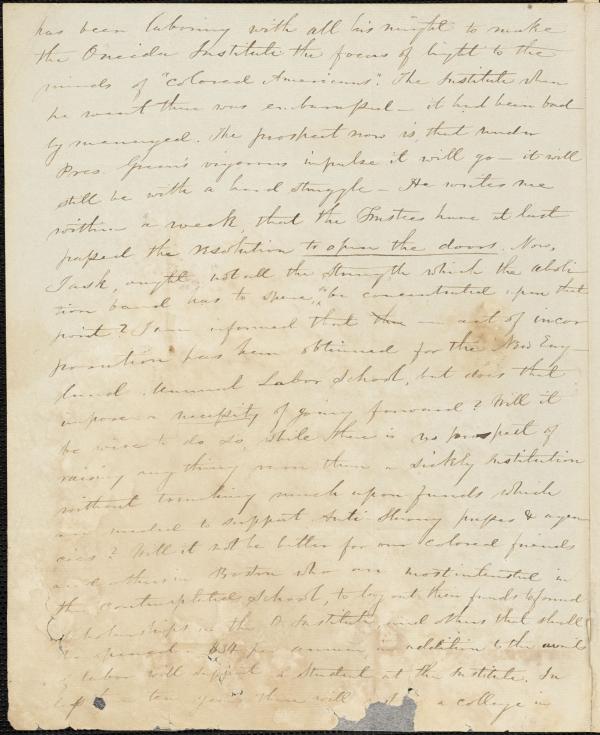 has been laboring with all his might to make
the Oneida Institute the focus of light to the
minds of "colored Americans". The Institute when
he went there was embarrassed — it had been bad
ly managed. The prospect now is that under
Pres. Green's vigorous impulse it will go — it will
still be with a hard struggle — He writes me
within a week, that the Trustees have at last
passed the resolution to open the doors. Now,
I ask, ought not all the strength which the aboli
tion band has to spare, to be concentrated upon that
point? I am informed that an act of incor
poration has been obtained for the New Eng
land Manual Labor School, but does that
impose a necessity of going forward? Will it
be wise to do so, while there is no prospect of
raising any thing more than a sickly institution
without trenching much upon funds which
are needed to support Anti Slavery presses & agen
cies? Will it not be better for our colored friends
and others in Boston who are most interested in
the contemplated School, to lay out their funds to found
scholarships in the O. Institute and others that shall
be opened. $34 per annum in addition to the avails
of labor will support a student at the Institute. In
less than ten years there will be a college in